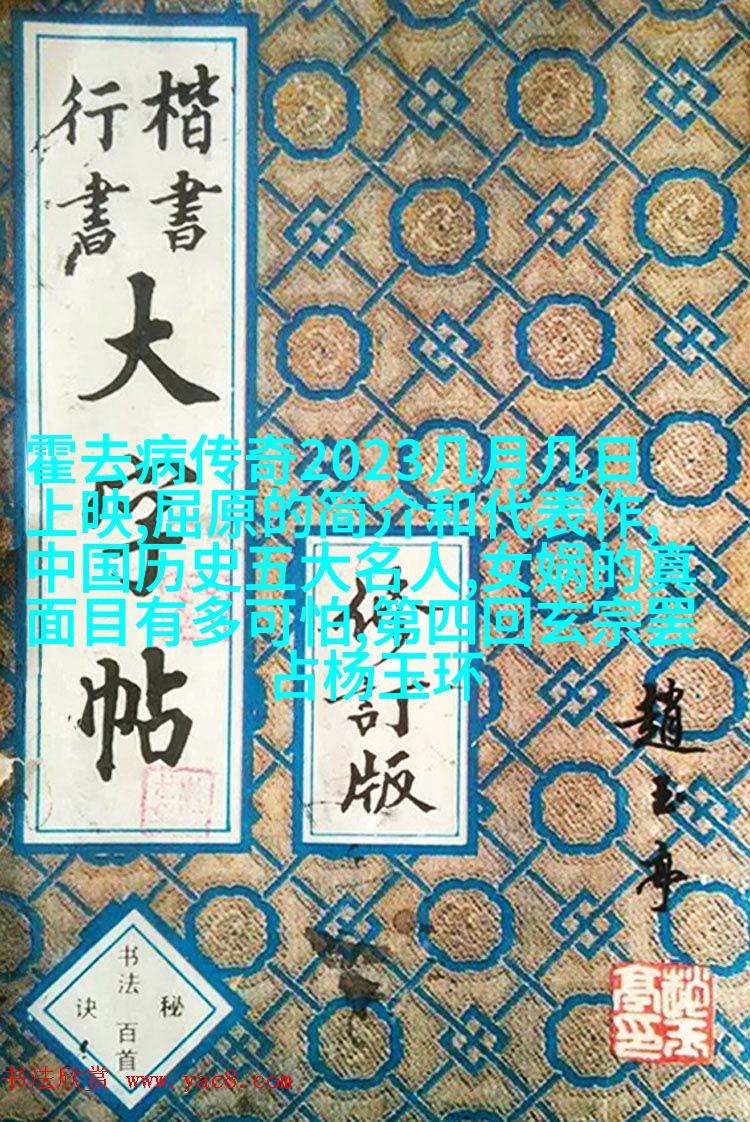 楷書
行書
大字帖
修訂版
霍去病传奇2023几月几日
上映,屈原的简介和代表作,
中国历史五大名人,女娲的真
面目有多可怕,第四回玄宗罢
占杨玉环
趙玉亭
书法
秘诀
百首
书法欣赏 www.yac8.com